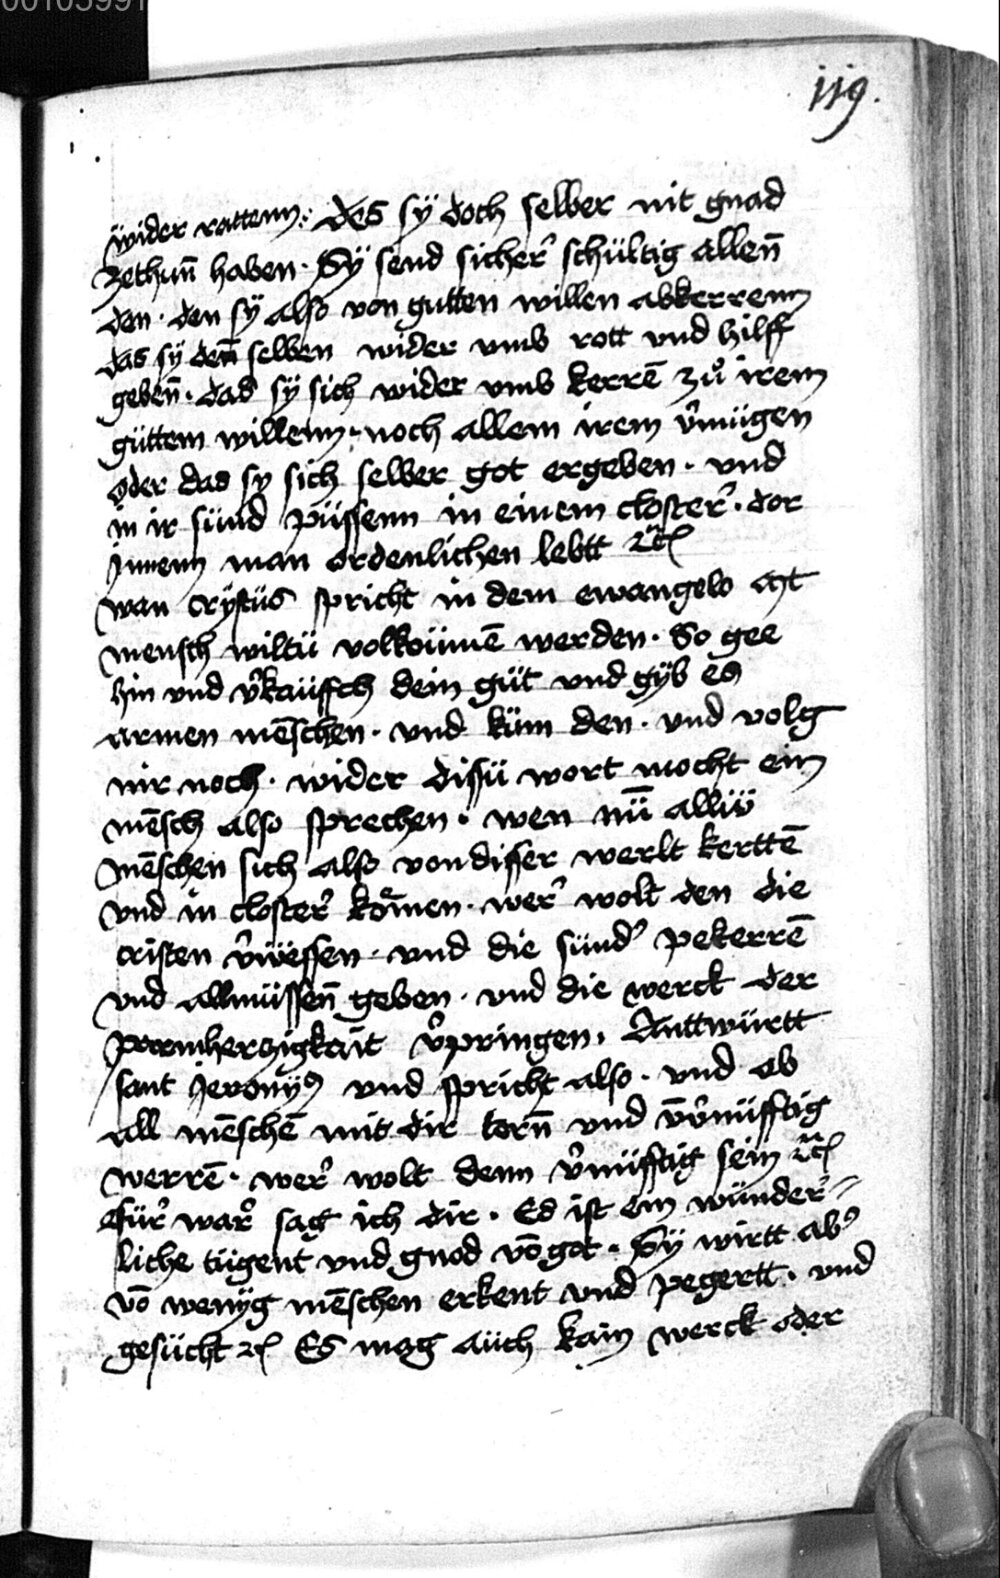 00103991
119.
wider rattenn: des sÿ doch selber nit gnad
zethun̄ haben. Sÿ send sicher̄ schültig allen̄
den. den sÿ also von gutten willen abkerrenn
das sÿ den̄ selben wider vmb rott vnd hilff
geben̄. dad sÿ sich wider vmb kerrē zů irem
güttem willenn. noch allem irem v̄mügen
oder das sy sich selber got ergeben. vnd
in ir sünd püssenn in einem closter̄. dor
Jnnenn man ordenlichen lebtt ꝛc̄
wan crÿstüs spricht in dem ewangelo
mensch wiltü volkoümē werden. So gee
hin vnd v̄kaüffch dein güt vnd gÿb es
armen mēschen. vnd küm den. vnd volg
mir noch. wider dissü wort mocht ein
mēsch also sprechen. wen nū allü
mēschen sich also von disser werlt kerttē
vnd in closter̄ kömen. wer̄ wolt den die
cristen v̄wëssen. vnd die sünd' pekerrē
vnd allmüssen̄ geben. vnd die werck der
parmherzigkait v̄pringen. Anttwürtt
sant Jeronÿ9 vnd spricht also. vnd ob
all mēschē mit dir torn̄ vnd vv̄nüfftig
werrē. wer̄ wolt denn v̄nüfftig sein ꝛc̄
für̄ war̊ sag ich dir. Es ist ein wünder̄=
liche tügent vnd gnod vō got. Sÿ wirtt ab'
vō wenÿg mēschen erkent vnd pegertt. vnd
gesücht ꝛc Es mag aüch kain werck oder